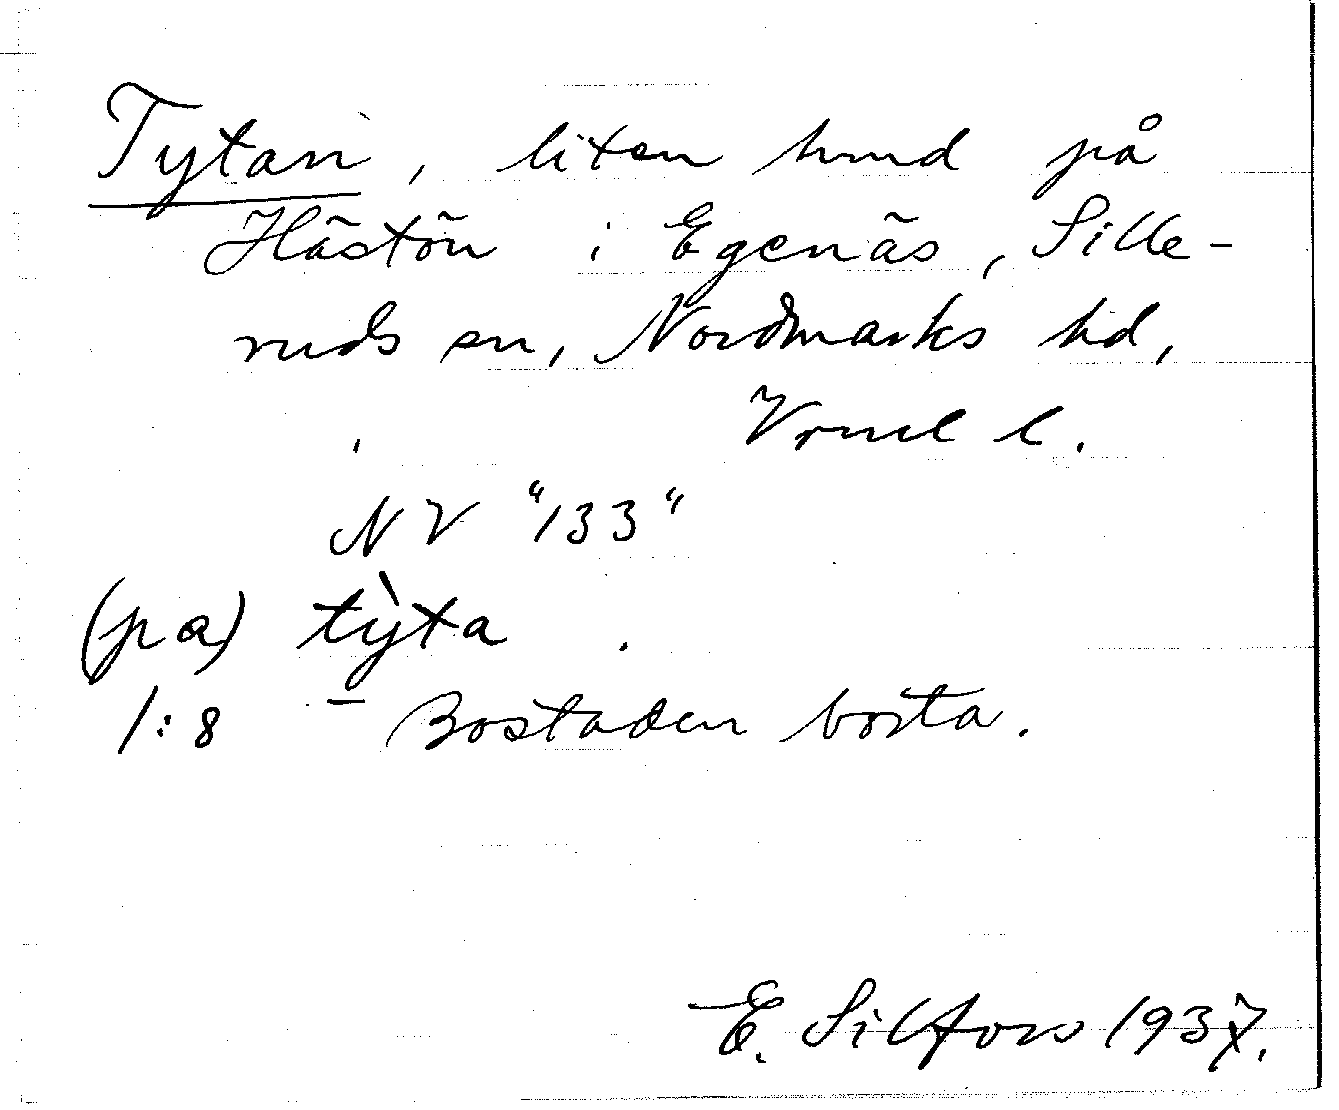 Tytan, liten hmd på
Hästön i Egenäs, Sille-
ruds sn, Nordmarks hd,
Vrml l.
NV "133"
(pa) tỳta
1:8 – Bostaden borta.
E. Silfors 1937.